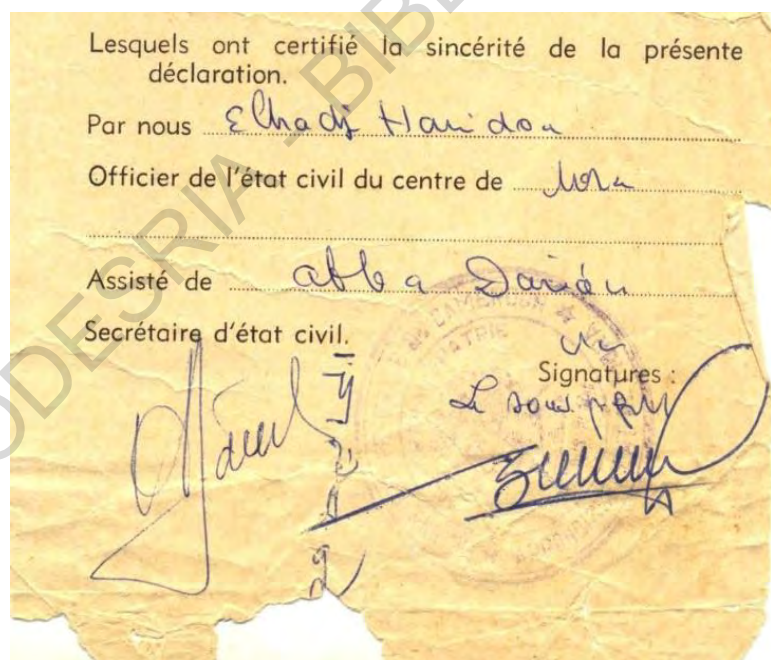 Lesquels ont certifié la sincérité de la présente
déclaration.
Par nous Elhadj Hamidou
Officier de l'état civil du centre de Mora
Assisté de abba
Secrétaire d'état civil.
CAMEROUN
PATRIE
Vu
Signatures :
Le sous préfet
CODESRIA - BIBL